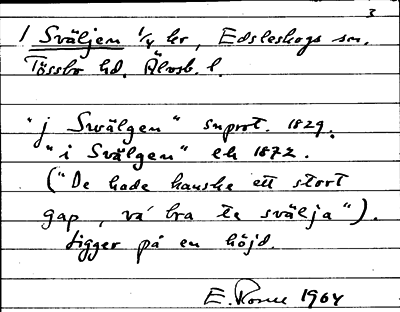 3
1 Sväljen 1/4 hr, Edsleskogs sn.
Tössbo hd. Älvsb. l.
"j Swälgen" snprot. 1829.
"i Svälgen" ek 1872.
("De hade kanske ett stort
gap, va' bra te svälja").
Ligger på en höjd.
E. 1964